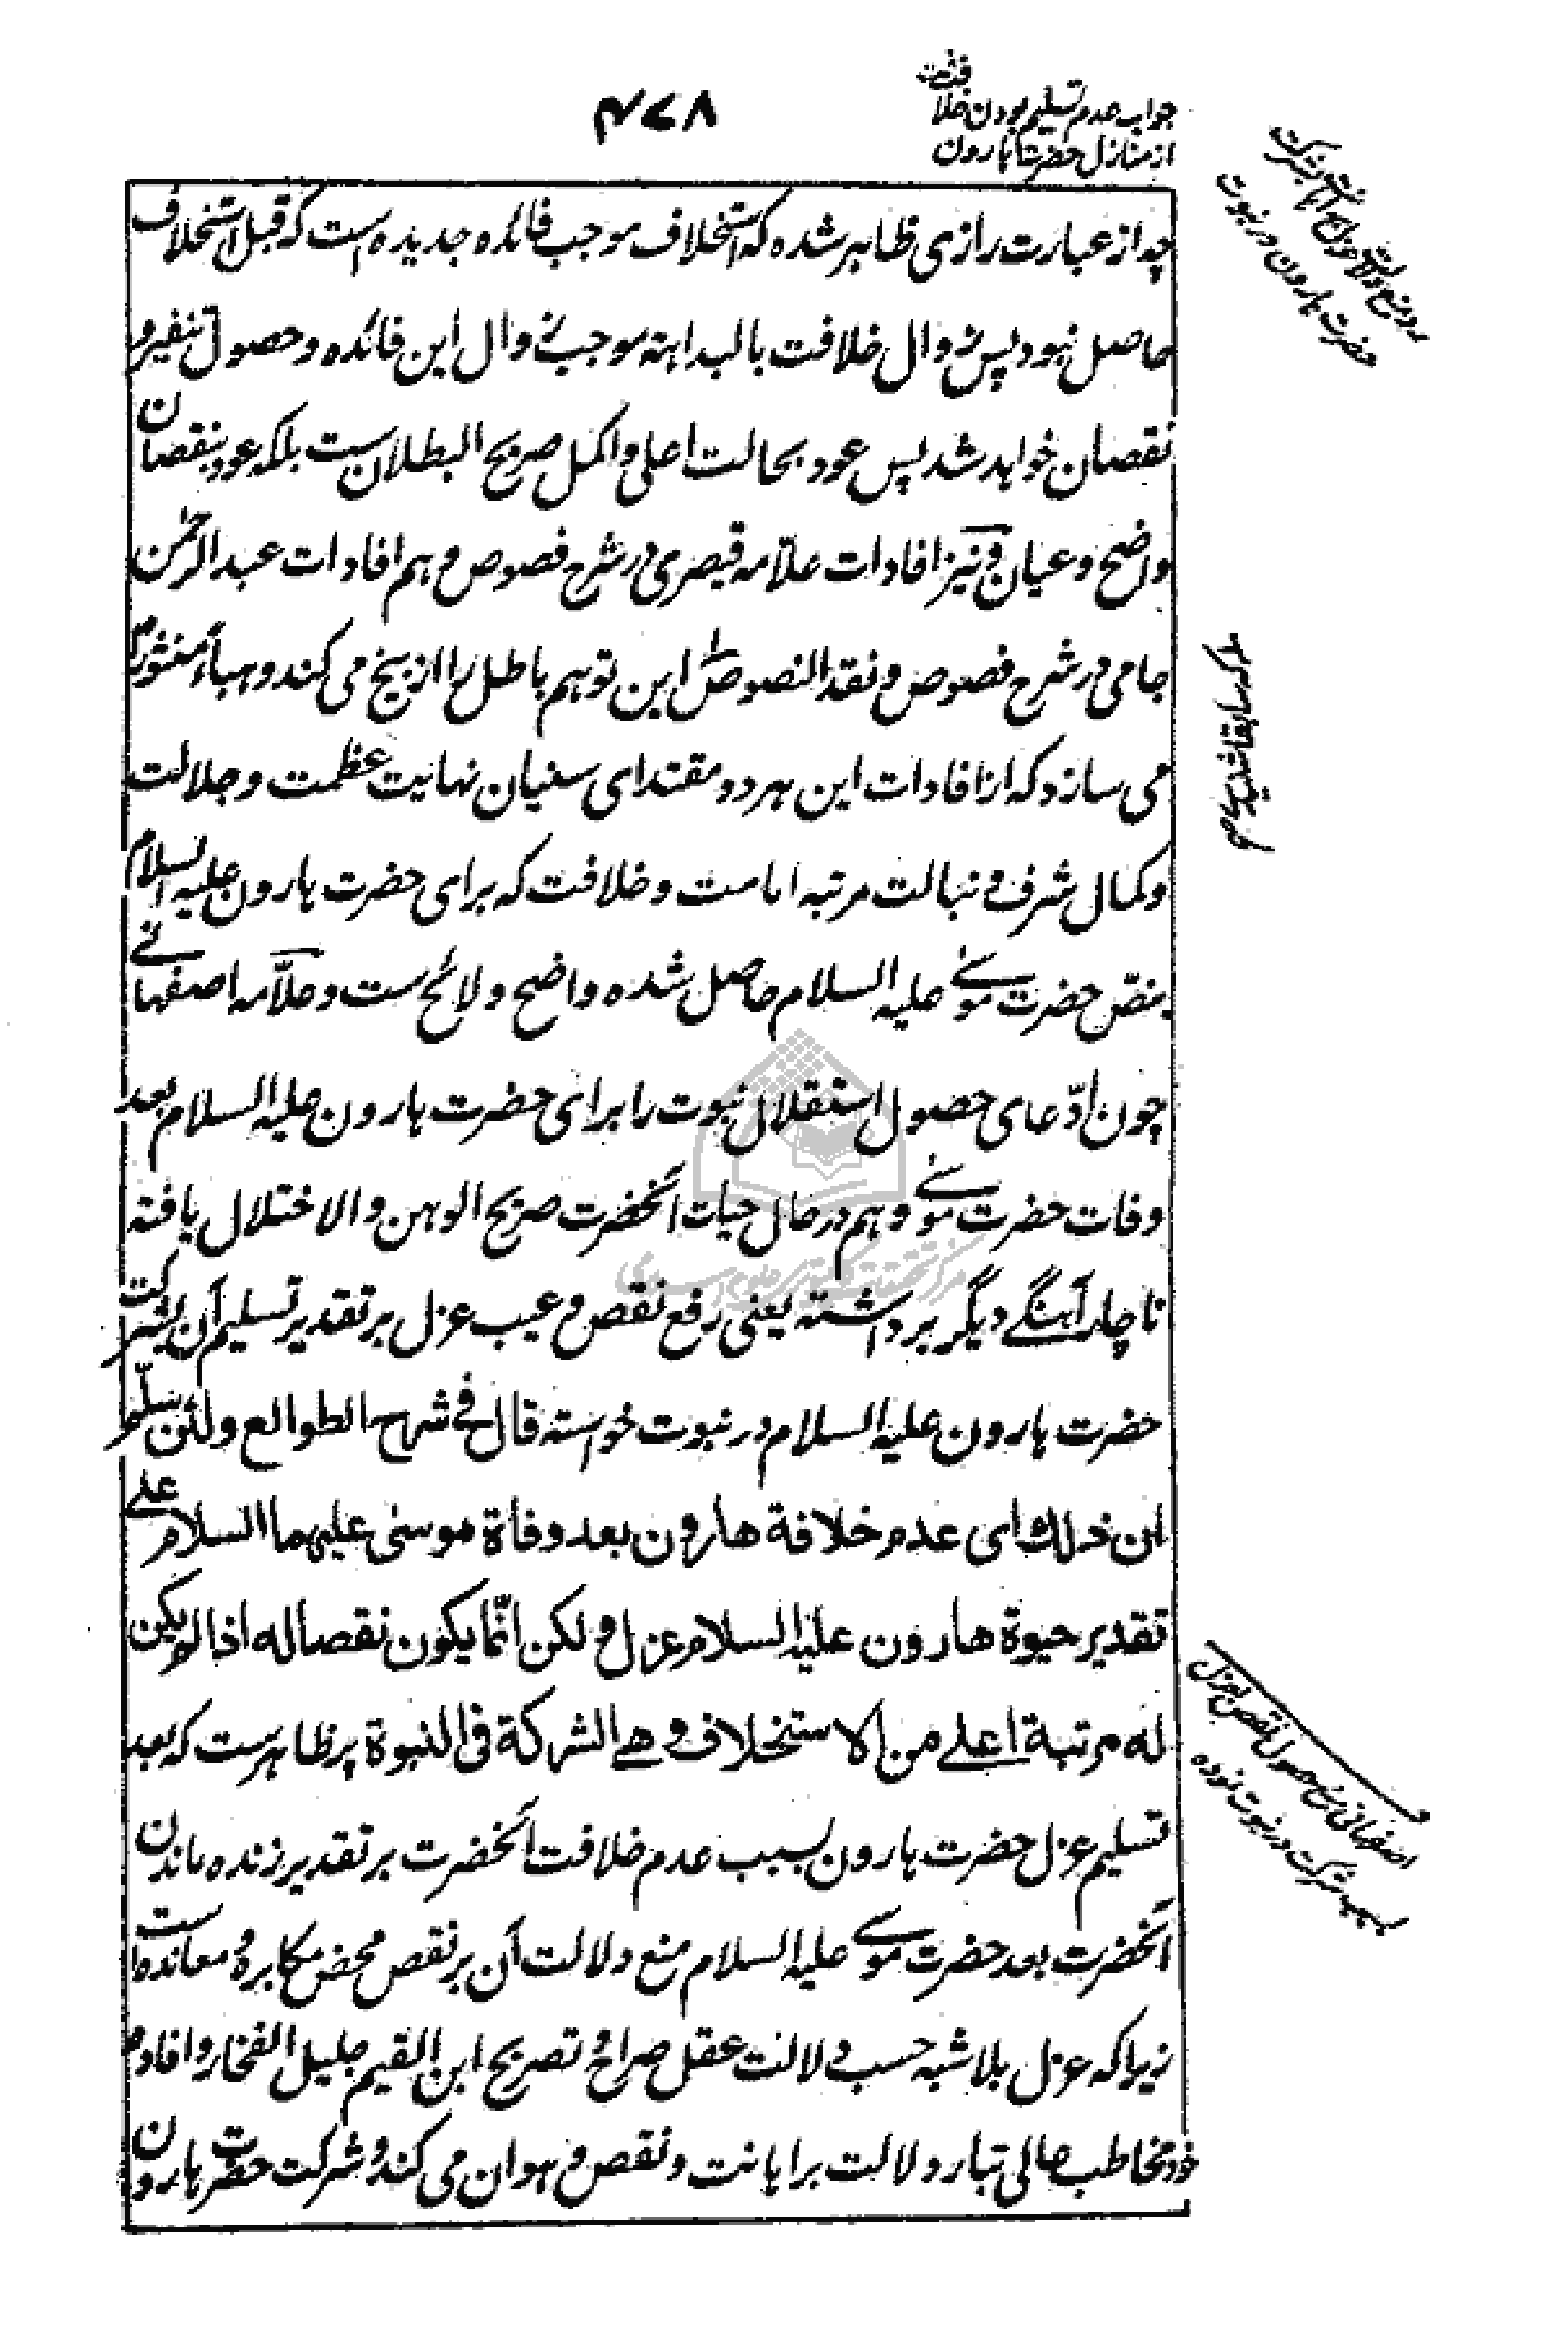 ۴۷۸
جواب عدم تسلیم بودن خلافت
از منازل حضرت هارون
چه از عبارت رازی ظاهر شده که استخلاف موجب فائده جدیده است که قبل استخلاف
حاصل نبود پس زوال خلافت بالبداهة موجب زوال این فائده و حصول تنفیر و
نقصان خواهد شد پس عود بحالت اعلی و اکمل صریح البطلان ست بلکه عود بنقصان
واضح و عیان و نیز افادات علّامه قیصری در شرح فصوص و هم افادات عبد الرحمن
جامی در شرح فصوص و نقد النصوص این توهم باطل را از بیخ می کند و هباءً منثورا
می سازد که از افادات این هر دو مقتدای سنیان نهایت عظمت و جلالت
و کمال شرف و نبالت مرتبه امامت و خلافت که برای حضرت هارون علیه السلام
بنصّ حضرت موسی علیه السلام حاصل شده واضح و لائح ست و علّامه اصفهانی
چون ادّعای حصول استقلال نبوت را برای حضرت هارون علیه السلام بعد
وفات حضرت موسی و هم در حال حیات آنحضرت صریح الوهن والاختلال یافته
ناچار آهنگے دیگر برداشته یعنی رفع نقص و عیب عزل بر تقدیر تسلیم آن بشرکت
حضرت هارون علیه السلام در نبوت خواسته قال فی شرح الطوالع ولئن سلّم
ان ذلك ای عدم خلافة هارون بعد وفاة موسی علیهما السلام علی
تقدیر حیوة هارون علیه السلام عزل و لکن انّما یکون نقصا له اذا لم یکن
له مرتبة اعلی من الاستخلاف و هی الشرکة فی النبوة پر ظاهرست که بعد
تسلیم عزل حضرت هارون بسبب عدم خلافت آنحضرت بر تقدیر زنده ماندن
آنحضرت بعد حضرت موسی علیه السلام منع دلالت آن بر نقص محض مکابره و معانده است
زیرا که عزل بلا شبه حسب دلالت عقل صراح و تصریح ابن القیم جلیل الفخار و افادهٔ
خود مخاطب عالی تبار دلالت بر اهانت و نقص و هوان می کند و شرکت حضرت هارون
حضرت هارون در نبوت
اصفهانی منع حصول نقص بعزل
بسبب شرکت در نبوت نموده